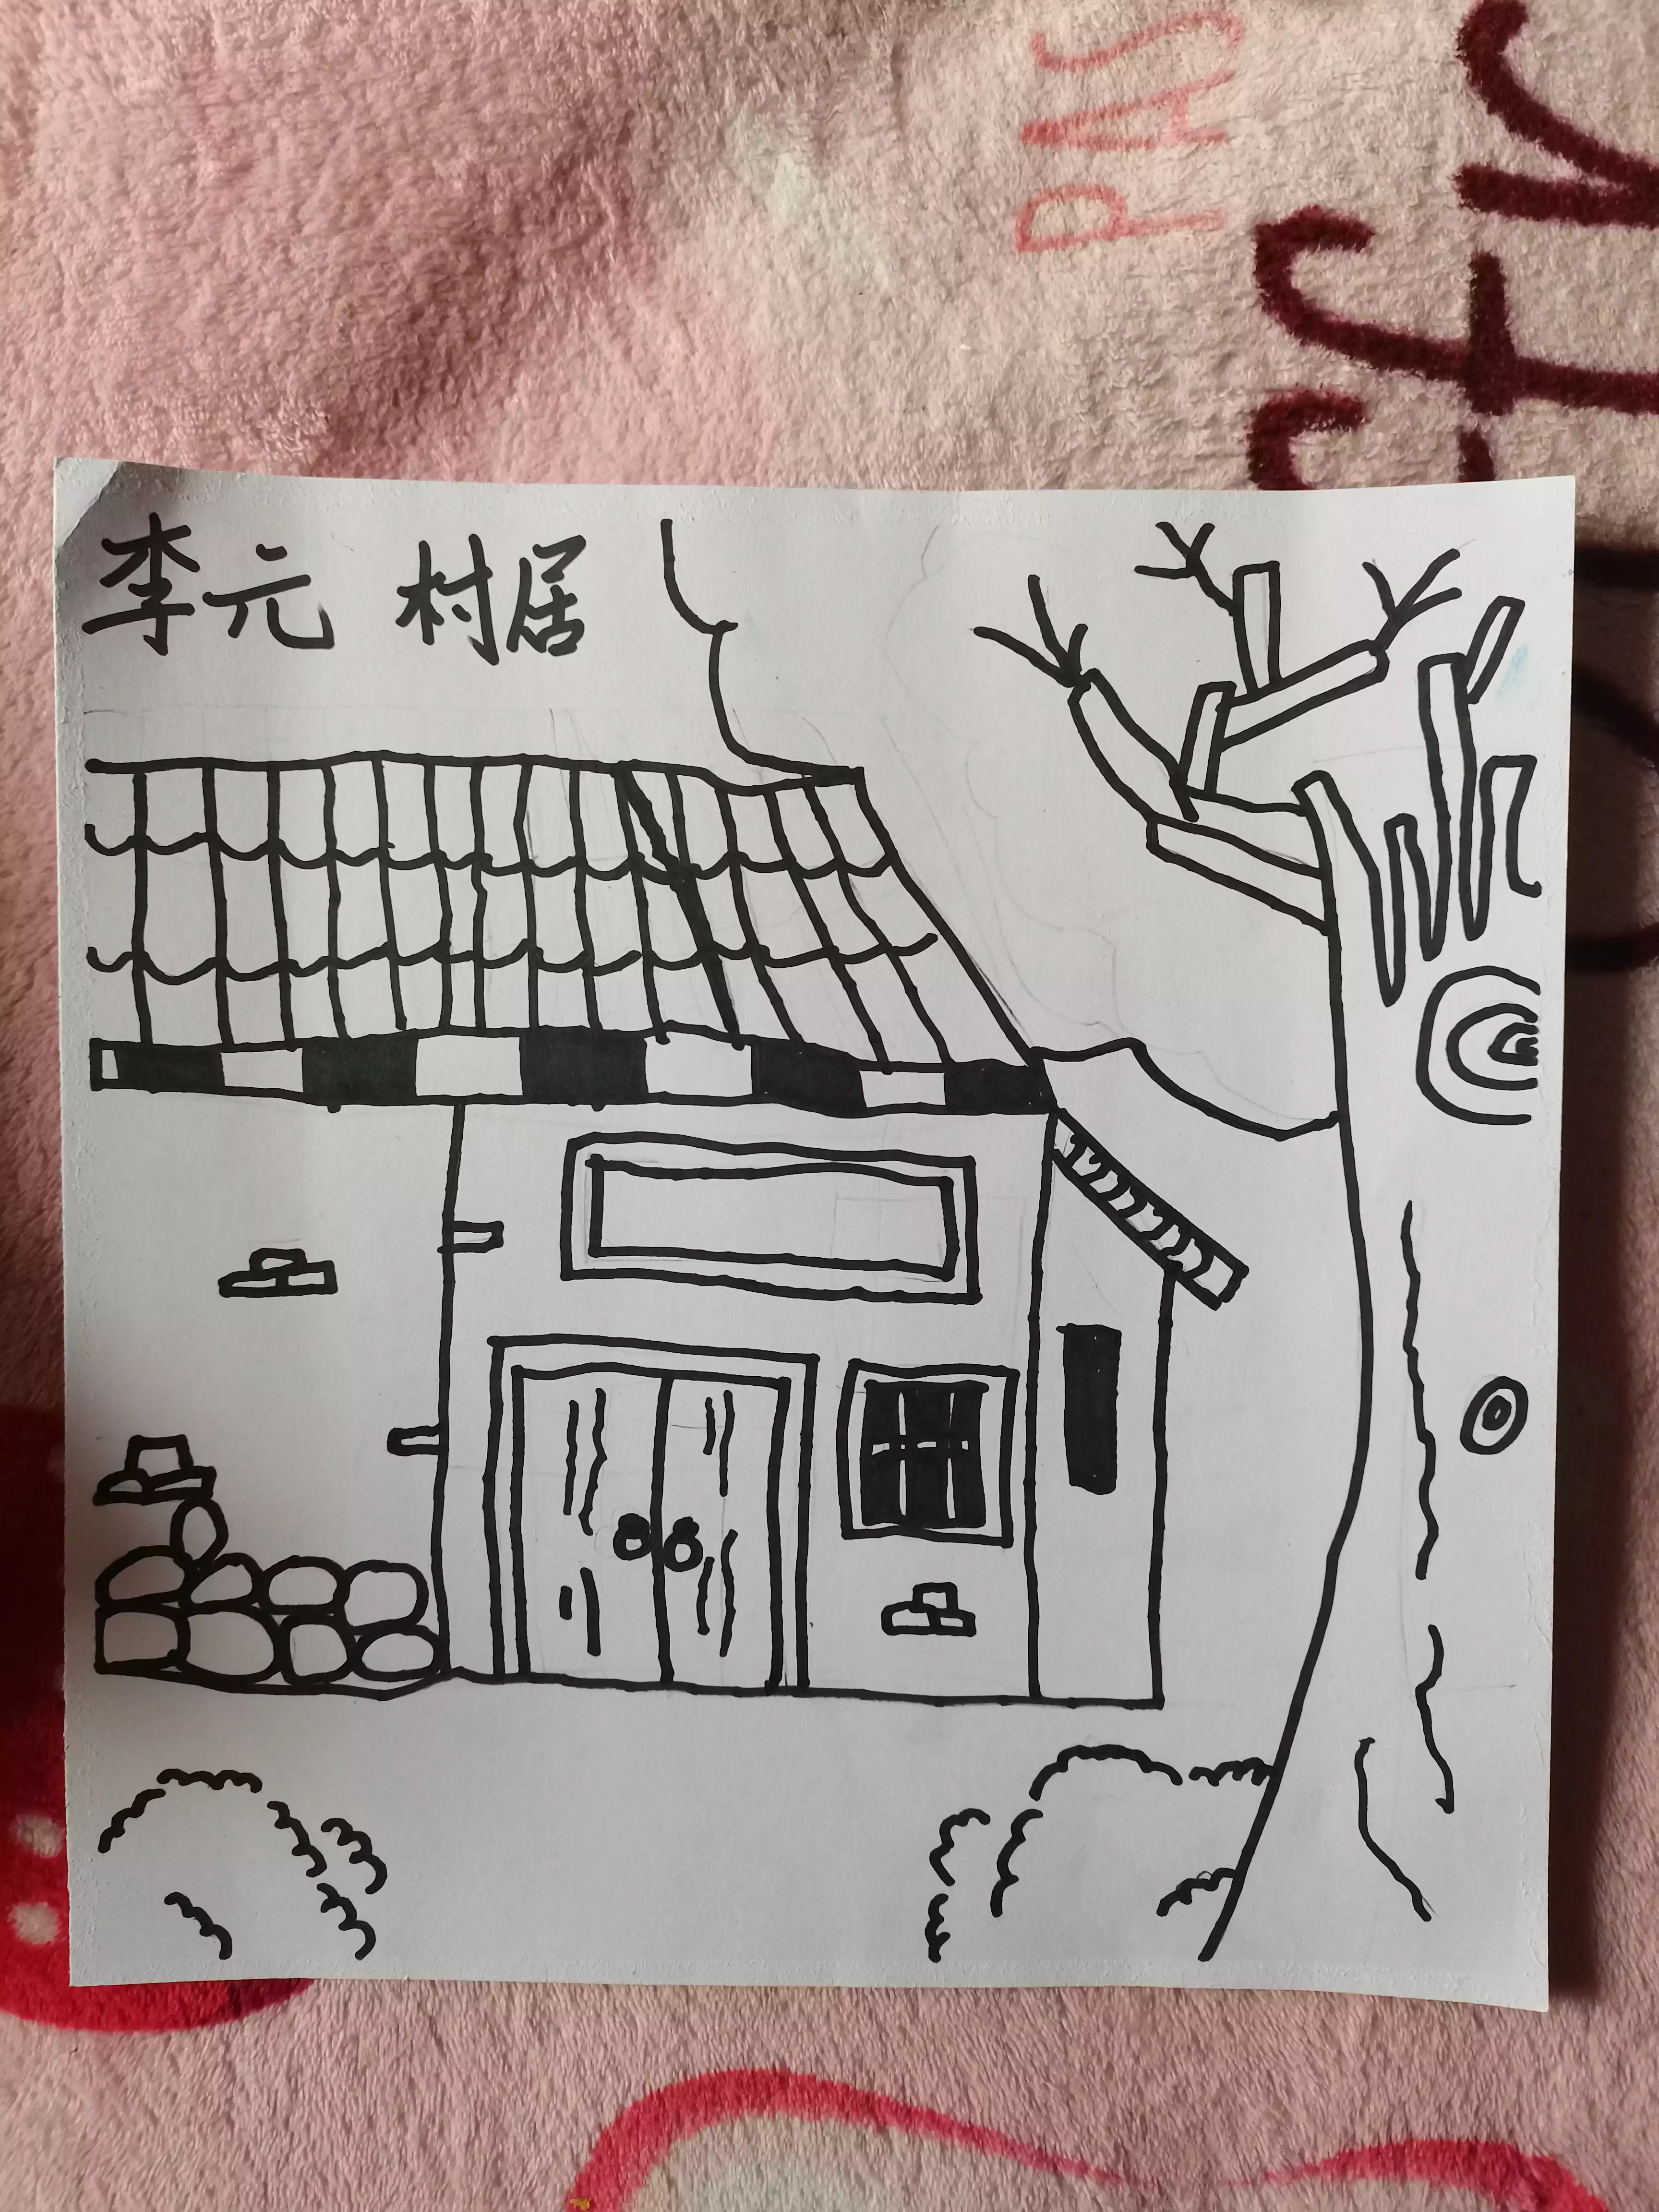 李元 村居
PAS